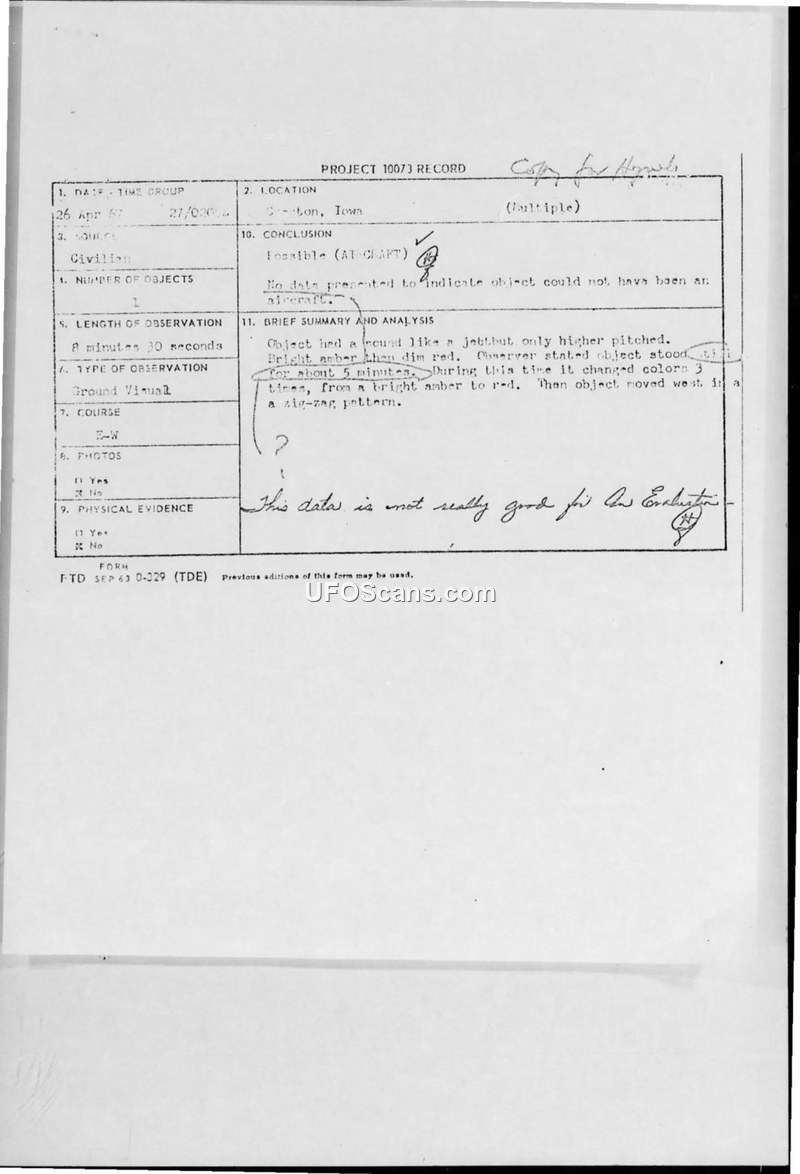 PROJECT 10073 RECORD
Copy for Hynek
1. DATE - TIME GROUP
26 Apr 67 27/0200
2. LOCATION
Creston, Iowa (Multiple)
3. SOURCE
Civilian
10. CONCLUSION
Possible (AIRCRAFT)
No data presented to indicate object could not have been an
aircraft.
4. NUMBER OF OBJECTS
1
5. LENGTH OF OBSERVATION
8 minutes 30 seconds
11. BRIEF SUMMARY AND ANALYSIS
Object had a sound like a jetbut only higher pitched.
Bright amber then dim red. Observer stated object stood still
for about 5 minutes. During this time it changed colors 3
times, from a bright amber to red. Then object moved west in a
a zig-zag pattern.
6. TYPE OF OBSERVATION
Ground Visual
7. COURSE
E-W
?
8. PHOTOS
□ Yes
X No
This data is not really good for an Evaluation -
H
9. PHYSICAL EVIDENCE
□ Yes
X No
FORM
FTD SEP 63 0-329 (TDE) Previous editions of this form may be used.
UFOScans.com